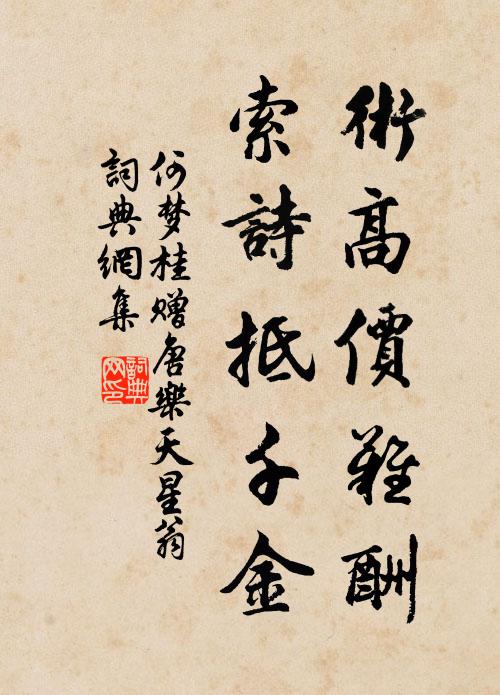 術高價難酬
索詩抵千金
何梦桂贈唐樂天星翁
詞典網集
詞典
网印